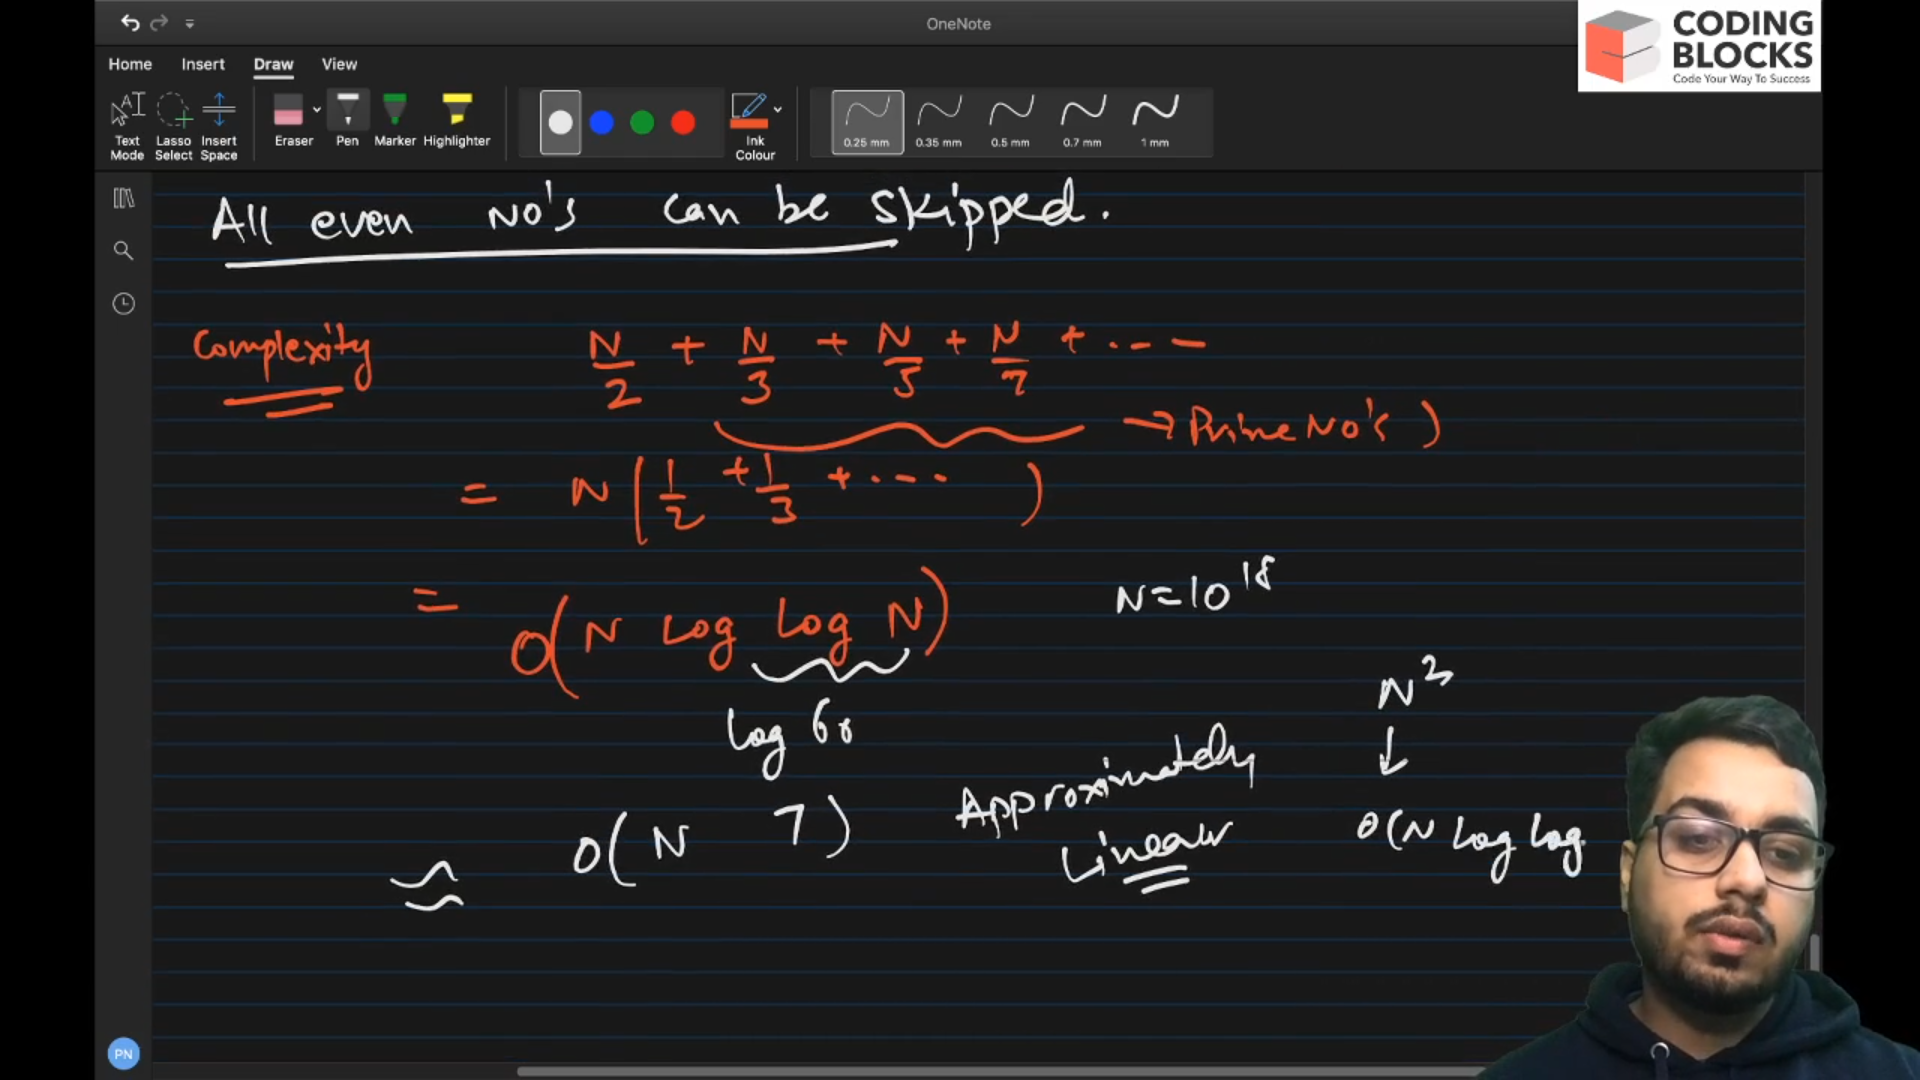 OneNote
CODING
BLOCKS
Code Your Way To Success
Home Insert Draw View
Text Mode
Lasso Select
Insert Space
Eraser
Pen
Marker
Highlighter
Ink Colour
0.25 mm
0.35 mm
0.5 mm
0.7 mm
1 mm
All even NO's can be skipped.
Complexity N/2 + N/3 + N/5 + N/7 + ---
→ Prime No's )
= N ( 1/2 + 1/3 + --- )
= O( N Log log N)
N=10^18
N^2
↓
log 60
Approximately
Linear
≈ O( N 7 )
O(N Log log
PN